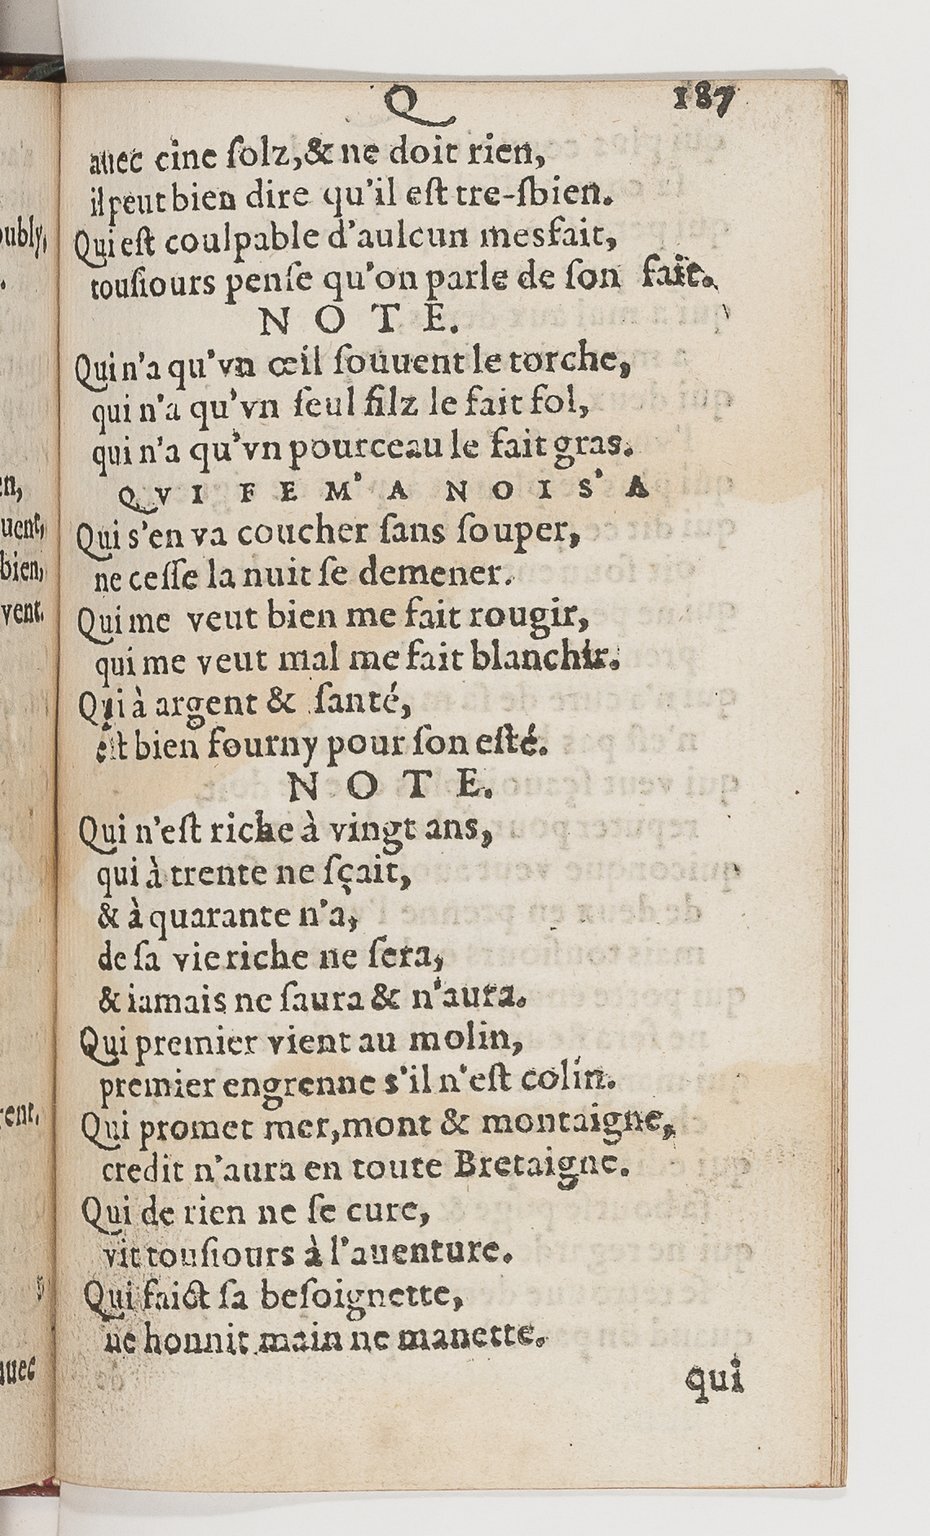 Q 187
auec cinc ſolz,& ne doit rien,
il peut bien dire qu'il eſt tre-ſbien.
Qui eſt coulpable d'aulcun mesfait,
touſiours penſe qu'on parle de ſon fait.
NOTE.
Qui n'a qu'vn œil ſouuent le torche,
qui n'a qu'vn ſeul filz le fait fol,
qui n'a qu'vn pourceau le fait gras.
QVI FEM' A NOIS' A
Qui s'en va coucher ſans ſouper,
ne ceſſe la nuit ſe demener.
Qui me veut bien me fait rougir,
qui me veut mal me fait blanchir.
Qui à argent & ſanté,
eſt bien fourny pour ſon eſté.
NOTE.
Qui n'eſt riche à vingt ans,
qui à trente ne ſçait,
& à quarante n'a,
de ſa vie riche ne ſera,
& iamais ne ſaura & n'aura.
Qui premier vient au molin,
premier engrenne s'il n'eſt colin.
Qui promet mer,mont & montaigne,
credit n'aura en toute Bretaigne.
Qui de rien ne ſe cure,
vit touſiours à l'auenture.
Qui faict ſa beſoignette,
ne honnit main ne manette.
qui